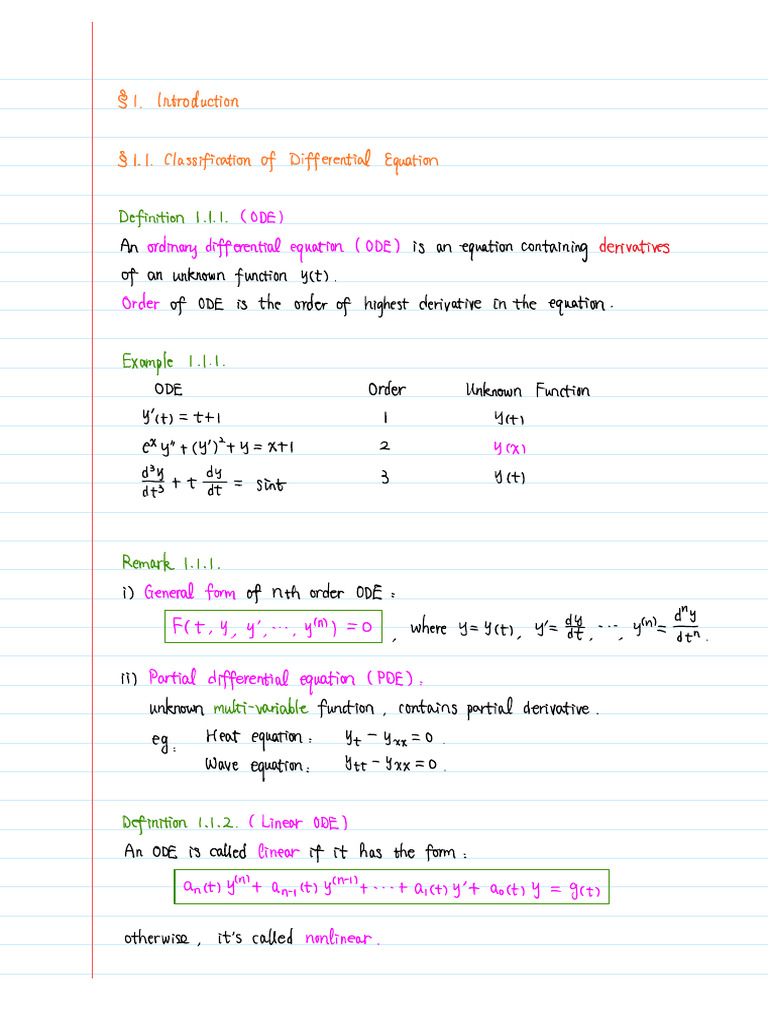 §1. Introduction
§1.1. Classification of Differential Equation
Definition 1.1.1. (ODE)
An ordinary differential equation (ODE) is an equation containing derivatives
of an unknown function y(t).
Order of ODE is the order of highest derivative in the equation.
Example 1.1.1.
ODE Order Unknown Function
y'(t) = t+1 1 y(t)
eˣy" + (y')² + y = x+1 2 y(x)
d³y/dt³ + t dy/dt = sint 3 y(t)
Remark 1.1.1.
i) General form of nth order ODE:
F(t, y, y', ..., y⁽ⁿ⁾) = 0, where y = y(t), y' = dy/dt, ..., y⁽ⁿ⁾ = dⁿy/dtⁿ.
ii) Partial differential equation (PDE):
unknown multi-variable function, contains partial derivative.
eg. Heat equation: y_t - y_xx = 0.
Wave equation: y_tt - y_xx = 0.
Definition 1.1.2. (Linear ODE)
An ODE is called linear if it has the form:
aₙ(t) y⁽ⁿ⁾ + aₙ₋₁(t) y⁽ⁿ⁻¹⁾ + ... + a₁(t) y' + a₀(t) y = g(t)
otherwise, it's called nonlinear.